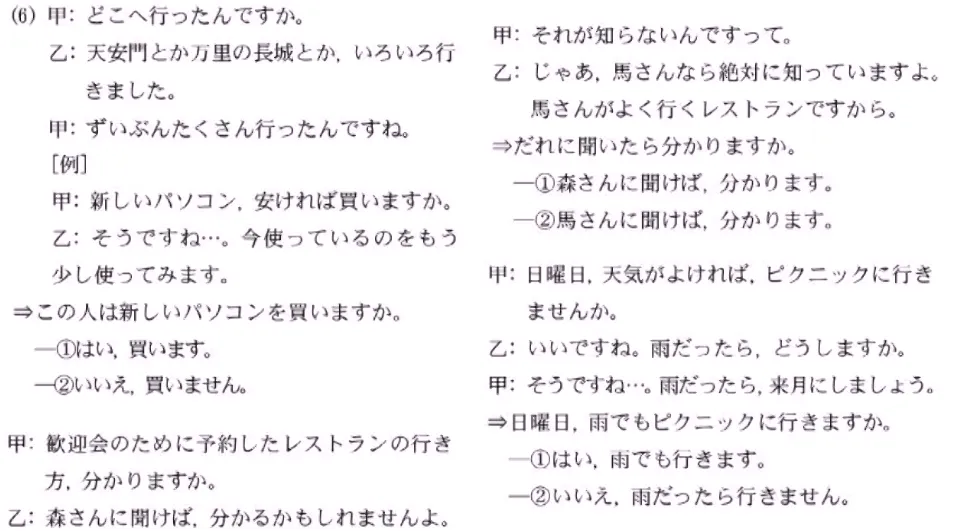 (6) 甲: どこへ行ったんですか。
乙: 天安門とか万里の長城とか, いろいろ行
きました。
甲: ずいぶんたくさん行ったんですね。
[例]
甲: 新しいパソコン, 安ければ買いますか。
乙: そうですね…。今使っているのをもう
少し使ってみます。
⇒この人は新しいパソコンを買いますか。
—①はい, 買います。
—②いいえ, 買いません。
甲: 歓迎会のために予約したレストランの行き
方, 分かりますか。
乙: 森さんに聞けば, 分かるかもしれませんよ。
甲: それが知らないんですって。
乙: じゃあ, 馬さんなら絶対に知っていますよ。
馬さんがよく行くレストランですから。
⇒だれに聞いたら分かりますか。
—①森さんに聞けば, 分かります。
—②馬さんに聞けば, 分かります。
甲: 日曜日, 天気がよければ, ピクニックに行き
ませんか。
乙: いいですね。雨だったら, どうしますか。
甲: そうですね…。雨だったら, 来月にしましょう。
⇒日曜日, 雨でもピクニックに行きますか。
—①はい, 雨でも行きます。
—②いいえ, 雨だったら行きません。